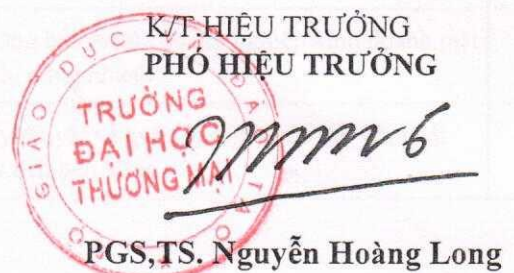 K/T.HIỆU TRƯỞNG
PHÓ HIỆU TRƯỞNG
GIÁO DỤC VÀ ĐÀO TẠO
TRƯỜNG
ĐẠI HỌC
THƯƠNG MẠI
PGS,TS. Nguyễn Hoàng Long